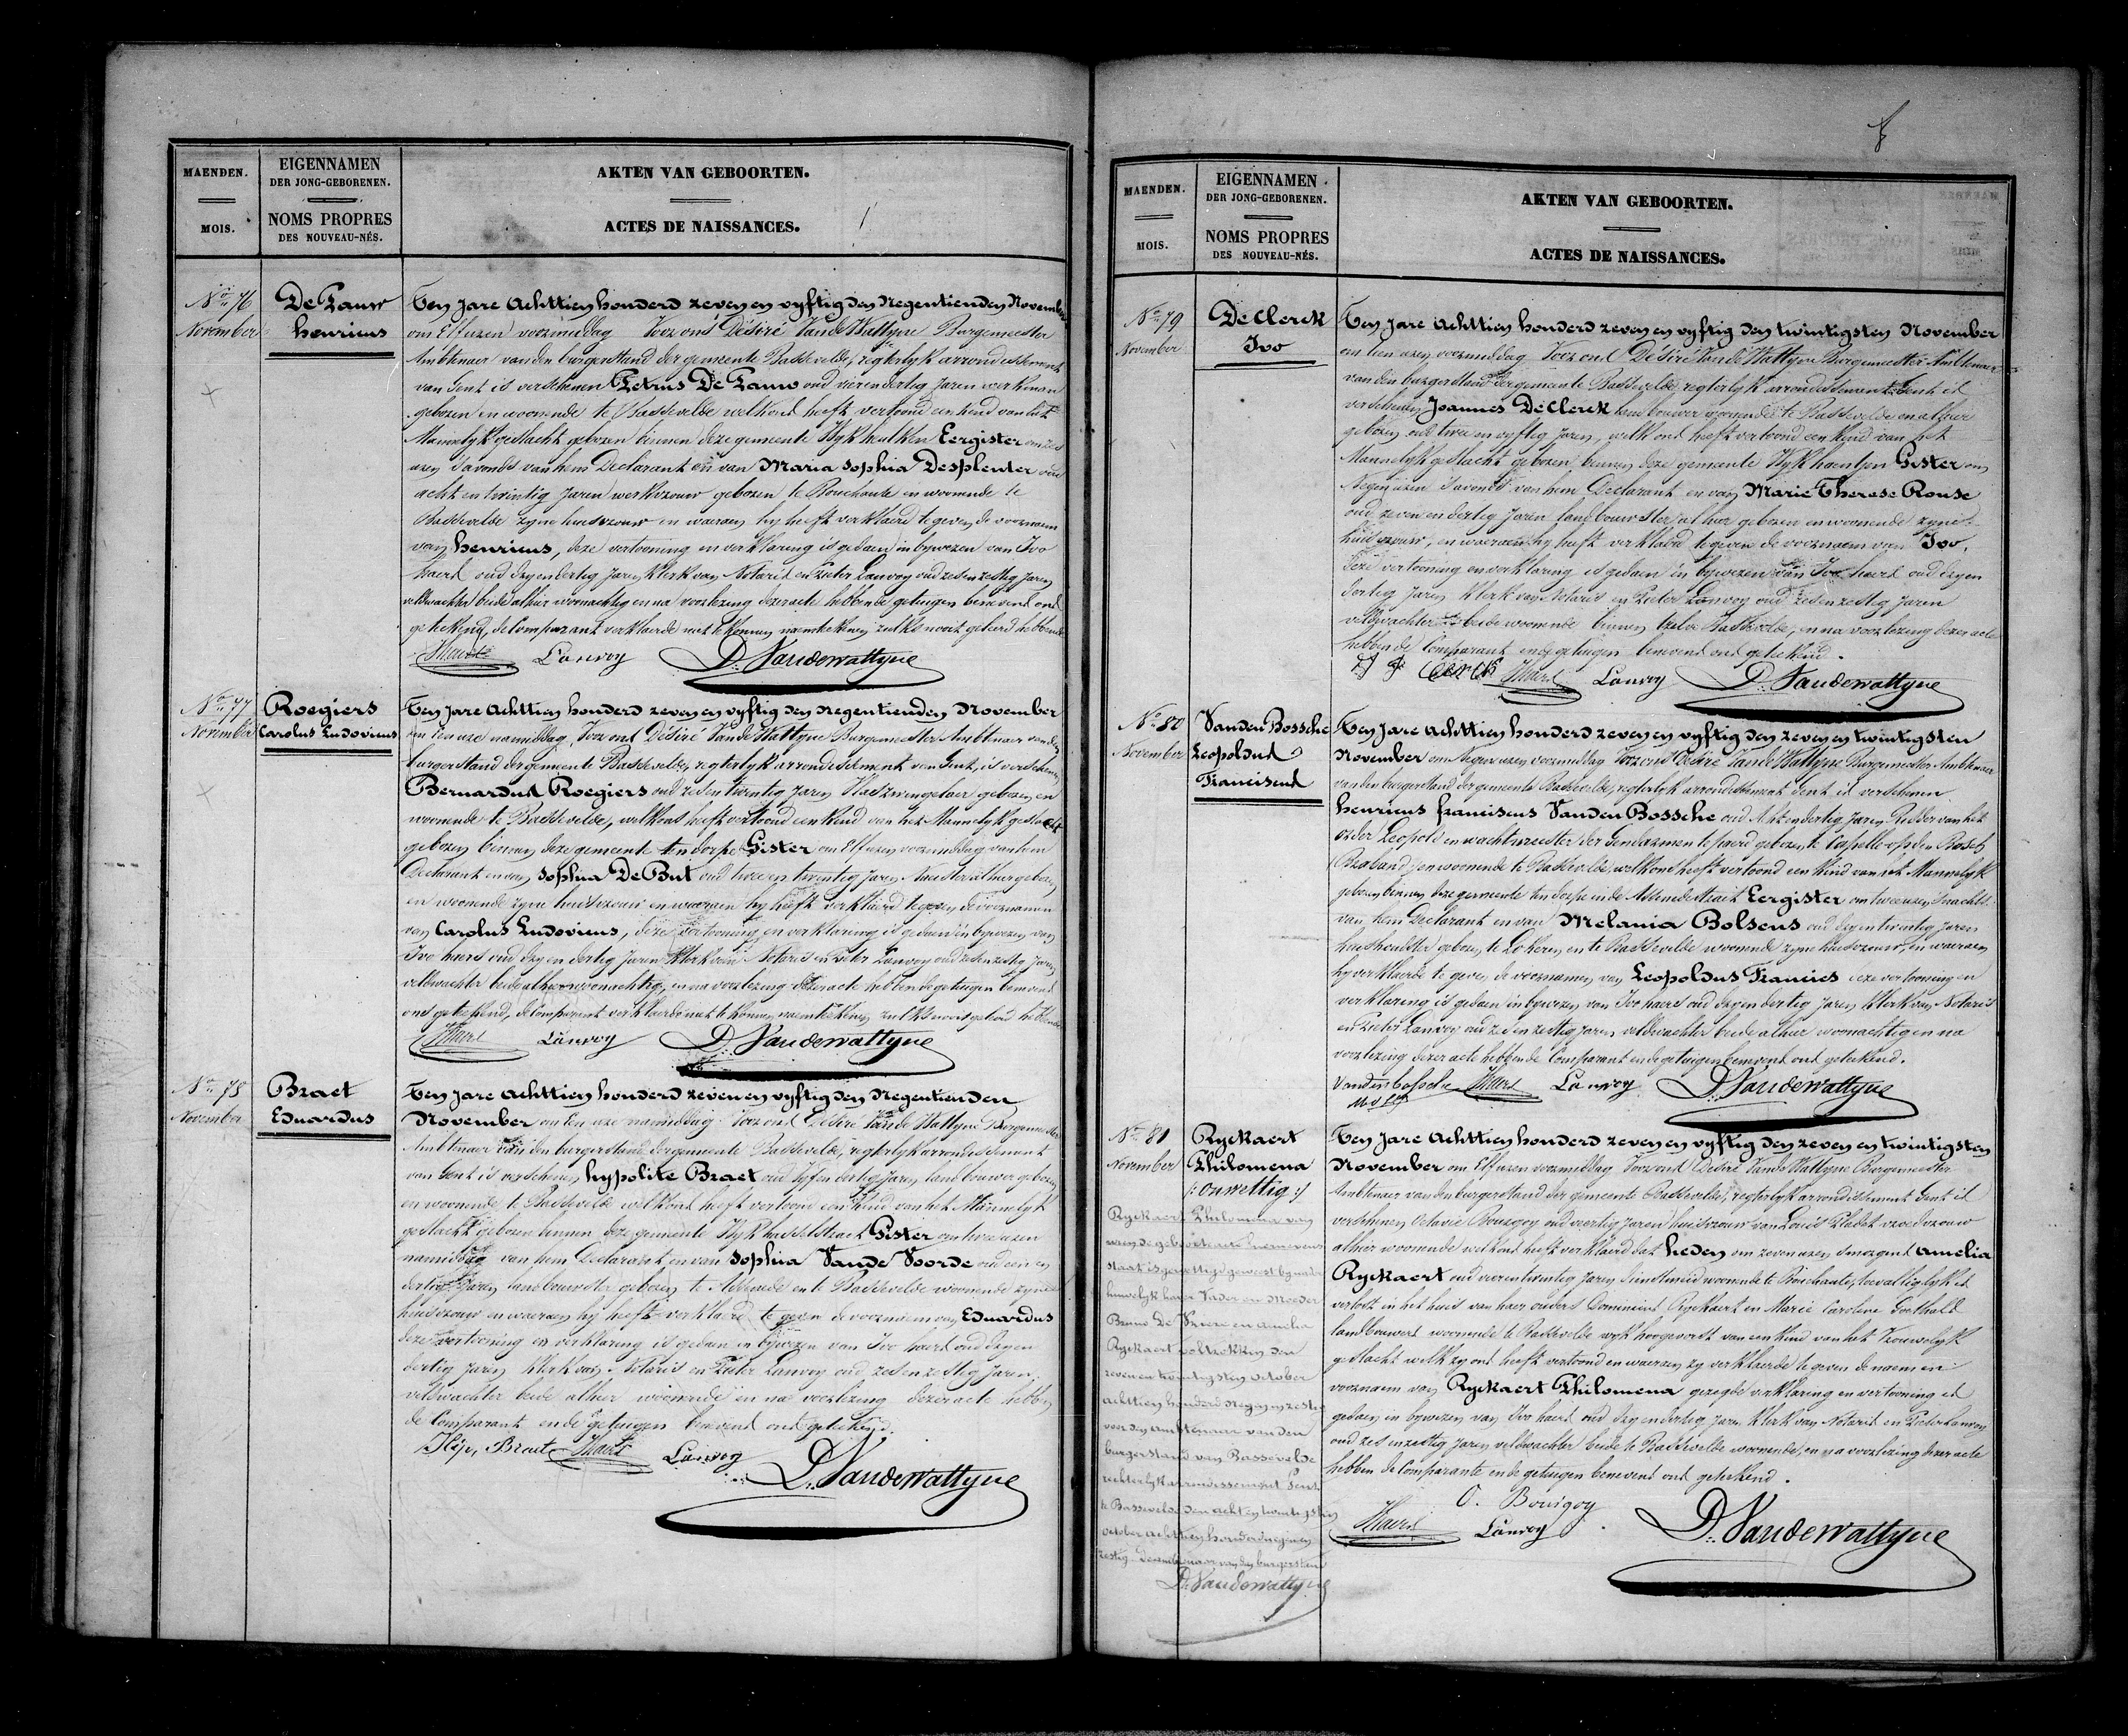 MAENDEN.
MOIS.
EIGENNAMEN
DER JONG-GEBORENEN.
NOMS PROPRES
DES NOUVEAU-NÉS.
AKTEN VAN GEBOORTEN.
ACTES DE NAISSANCES.
No 76
November
De Pauw
henricus
Ten Jare Achttien honderd zeven en vyftig den Negentienden November
om Elf uren voormiddag Voor ons Désiré Vande Wattyne Burgemeester
Ambtenaer van den burgerstand der gemeente Bassevelde, regterlyk arrondissement
van Gent is verschenen Petrus De Pauw oud vier en dertig Jaren werkman
geboren en woonende te Bassevelde welk ons heeft vertoond een kind van het
Mannelyk geslacht geboren binnen deze gemeente Wyk heulken Eergister om zes
uren s'avonds van hem Declarant en van Maria Sophia Desplenter oud
acht en twintig Jaren werkvrouw geboren te Bouchaute en woonende te
Bassevelde zyne huisvrouw en waeraen hy heeft verklaerd te geven de voornaem
van henricus, deze vertooning en verklaring is gedaen in bywezen van Ivo
haers oud dry en dertig Jaren klerk van Notaris en Pieter Lanvoy oud zes en zestig Jaren
veldwachter beide alhier woonachtig en na voorlezing dezer acte hebben de getuigen benevens ons
geteekend, de Comparant verklaerde niet te konnen naemteekenen zulks nooit geleerd hebbende
IHaers Lanvoy D. Vandewattyne
No 77
November
Roegiers
Carolus Ludovicus
Ten Jare Achttien honderd zeven en vyftig den Negentienden November
om een ure namiddag, Voor ons Désiré Vande Wattyne Burgemeester Ambtenaer van den
burgerstand der gemeente Bassevelde, regterlyk arrondissement van Gent, is verschenen
Bernardus Roegiers oud zes en twintig Jaren Vlaszwingelaer geboren en
woonende te Bassevelde, welk ons heeft vertoond een kind van het Mannelyk geslacht
geboren binnen deze gemeente ten dorpe Gister om Elf uren voormiddag van hem
Declarant en van Sophia De But oud twee en twintig Jaren alhier geboren
en woonende zyne huisvrouw en waeraen hy heeft verklaerd te geven de voornamen
van Carolus Ludovicus, deze vertooning en verklaring is gedaen in bywezen van
Ivo haers oud dry en dertig Jaren klerk van Notaris en Pieter Lanvoy oud zes en zestig Jaren
veldwachter beide alhier woonachtig, en na voorlezing dezer acte hebben de getuigen benevens
ons geteekend, de Comparant verklaerde niet te konnen naemteekenen zulks nooit geleerd hebbende
IHaers Lanvoy D. Vandewattyne
No 78
November
Braet
Eduardus
Ten Jare Achttien honderd zeven en vyftig den Negentienden
November om een ure namiddag Voor ons Désiré Vande Wattyne Burgemeester
Ambtenaer van den burgerstand der gemeente Bassevelde, regterlyk arrondissement
van Gent is verschenen hypolite Braet oud vyf en dertig Jaren landbouwer geboren
en woonende te Bassevelde welk ons heeft vertoond een kind van het Mannelyk
geslacht geboren binnen deze gemeente Wyk hasselstraet Gister om twee uren
namiddag van hem Declarant en van Sophia Vande Voorde oud een en
dertig Jaren landbouwster geboren te Assenede en te Bassevelde woonende zyne
huisvrouw en waeraen hy heeft verklaerd te geven de voornaem van Eduardus
deze vertooning en verklaring is gedaen in bywezen van Ivo haers oud dry en
dertig Jaren klerk van Notaris en Pieter Lanvoy oud zes en zestig Jaren
veldwachter beide alhier woonende en na voorlezing dezer acte hebben
de Comparant ende getuigen benevens ons geteekend.
Hip, Braet IHaers Lanvoy
D. Vandewattyne
MAENDEN.
MOIS.
EIGENNAMEN
DER JONG-GEBORENEN.
NOMS PROPRES
DES NOUVEAU-NÉS.
AKTEN VAN GEBOORTEN.
ACTES DE NAISSANCES.
No 79
November
De Clerck
Ivo
Ten Jare Achttien honderd zeven en vyftig den twintigsten November
om tien uren voormiddag Voor ons Désiré Vande Wattyne Burgemeester Ambtenaer
van den burgerstand der gemeente Bassevelde regterlyk arrondissement Gent is
verschenen Joannes De Clerck landbouwer woonende te Bassevelde en alhier
geboren oud twee en vyftig Jaren, welk ons heeft vertoond een kind van het
Mannelyk geslacht geboren binnen deze gemeente Wyk haentjen Gister om
Negen uren s'avonds van hem Declarant en van Marie Therese Rouse
oud zeven en dertig Jaren landbouwster alhier geboren en woonende zyne
huisvrouw, en waeraen hy heeft verklaerd te geven de voornaem van Ivo.
Deze vertooning en verklaring is gedaen in bywezen van Ivo haers oud dry en
dertig Jaren klerk van Notaris en Pieter Lanvoy oud zes en zestig Jaren
veldwachter beide woonende binnen Bassevelde, en na voorlezing dezer acte
hebben de Comparant ende getuigen benevens ons geteekend.
IHaers Lanvoy D. Vandewattyne
No 80
November
Vanden Bossche
Leopoldus
Franciscus
Ten Jare Achttien honderd zeven en vyftig den zeven en twintigsten
November om Negen uren voormiddag Voor ons Désiré Vande Wattyne Burgemeester Ambtenaer
van den burgerstand der gemeente Bassevelde, regterlyk arrondissement Gent is verschenen
henricus franciscus Vanden Bossche oud Acht en dertig Jaren Ridder van het
order Leopold en wachtmeester der Gendarmen te paerd geboren te Capelle op den Bosch
(Braband) en woonende te Bassevelde, welk ons heeft vertoond een kind van het Mannelyk
geboren binnen deze gemeente ten dorpe in de Assenedestraet Eergister om twee uren s'nachts
van hem Declarant en van Melania Bolsens oud dry en twintig Jaren
huishoudster geboren te Lokeren en te Bassevelde woonende zyne huisvrouw, en waeraen
hy verklaerde te geven de voornamen van Leopoldus Francies deze vertooning en
verklaring is gedaen in bywezen van Ivo haers oud dry en dertig Jaren klerk van Notaris
en Pieter Lanvoy oud zes en zestig Jaren veldwachter beide alhier woonachtig en na
voorlezing dezer acte hebben de Comparant ende getuigen benevens ons geteekend.
Vandenbossche IHaers Lanvoy D. Vandewattyne
No 81
November
Ryckaert
Philomena
/: onwettig :/
Ryckaert Philomena van
wien de geboorteacte hiernevens
staat is gewettigd geweest by het
huwelyk haer Vader en Moeder
Bruno De en Amelia
Ryckaert voltrokken den
zeven en twintigsten October
achttien honderd negen en zestig
voor den Ambtenaar van den
burgerstand van Bassevelde
rechterlyk arrondissement Gent
te Bassevelde den acht en twintigsten
october achttien honderd negen en
zestig. De ambtenaar van den burgerstand
D. Vandewattyne
Ten Jare Achttien honderd zeven en vyftig den zeven en twintigsten
November om Elf uren voormiddag Voor ons Désiré Vande Wattyne Burgemeester
Ambtenaer van den burgerstand der gemeente Bassevelde, regterlyk arrondissement Gent is
verschenen Octavie Bourgoy oud veertig Jaren huisvrouw van Louis vroedvrouw
alhier woonende welk ons heeft verklaerd dat heden om zeven uren smorgens Amelia
Ryckaert oud vier en twintig Jaren dienstmeid woonende te Bouchaute, toevalliglyk is
verlost in het huis van haer ouders Dominicus Ryckaert en Marie Caroline Goethals
landbouwers woonende te Bassevelde wyk hoogevorst van een kind van het Vrouwelyk
geslacht welk zy ons heeft vertoond en waeraen zy verklaerde te geven de naem en
voornaem van Ryckaert Philomena gezegde verklaring en vertooning is
gedaen in bywezen van Ivo haers oud dry en dertig Jaren klerk van Notaris en Pieter Lanvoy
oud zes en zestig Jaren veldwachter beide te Bassevelde woonende, en na voorlezing dezer acte
hebben de Comparante ende getuigen benevens ons geteekend.
O. Bourgoy
IHaers Lanvoy D. Vandewattyne